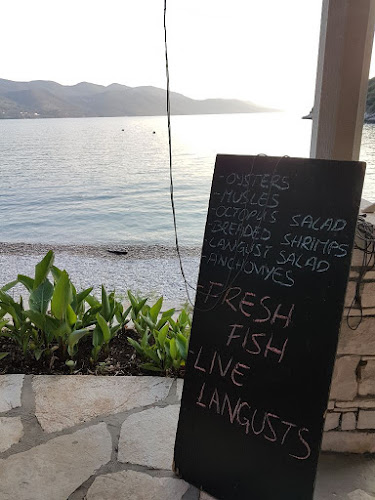 -OYSTERS
-MUSLES
-OCTOPUS SALAD
-BREADED SHRIMPS
-LANGUST SALAD
-ANCHOVYES
-FRESH
FISH
-LIVE
LANGUSTS